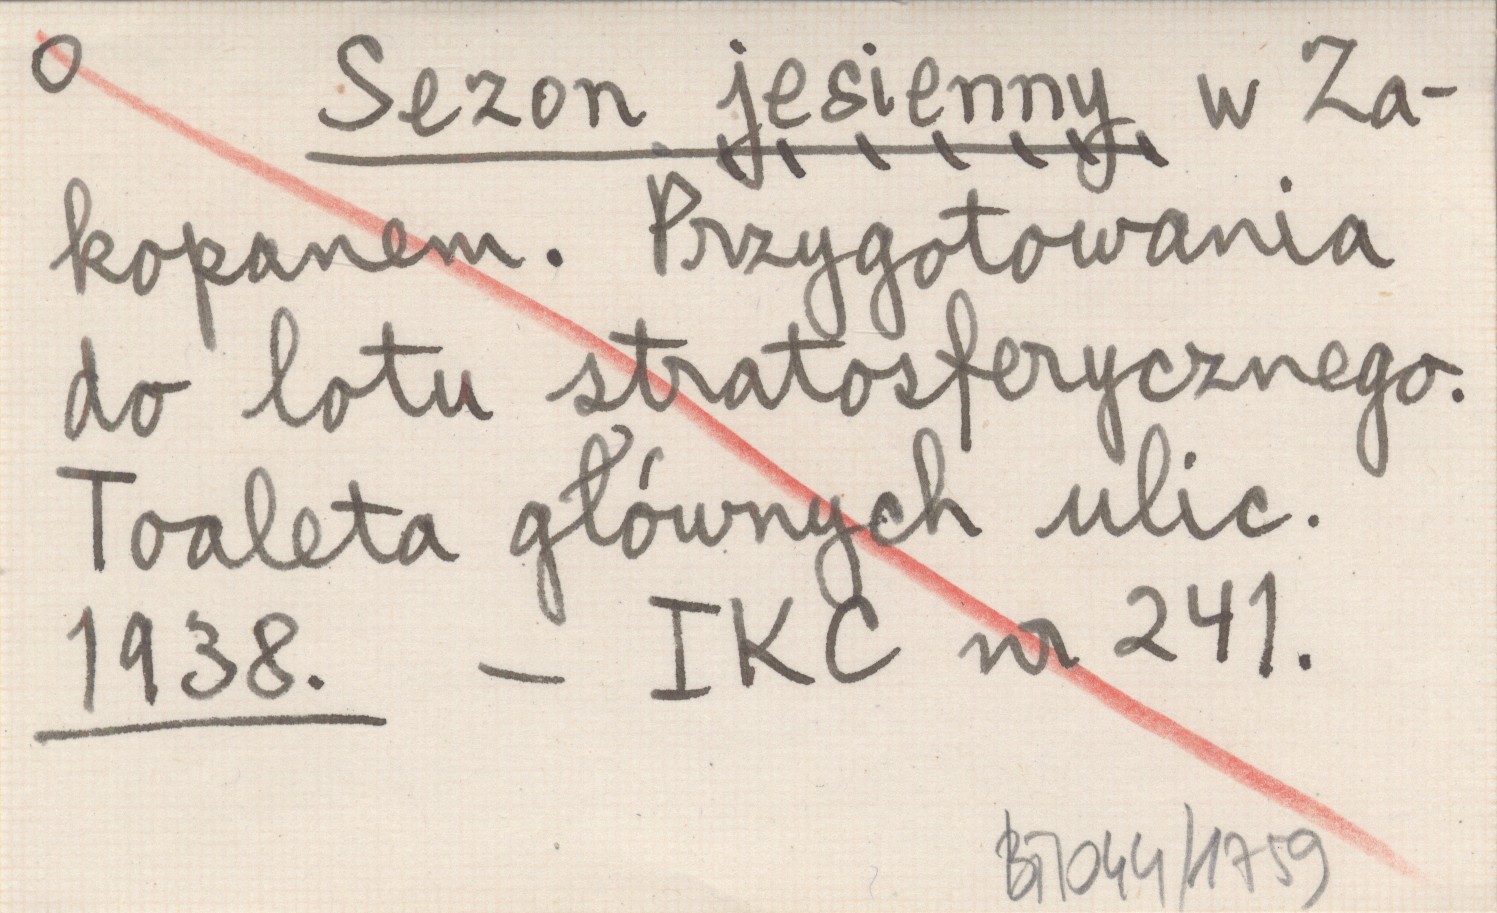 O Sezon jesienny w Za-
kopanem. Przygotowania
do lotu stratosferycznego.
Toaleta głównych ulic.
1938. – IKC nr 241.
BT/044/1759